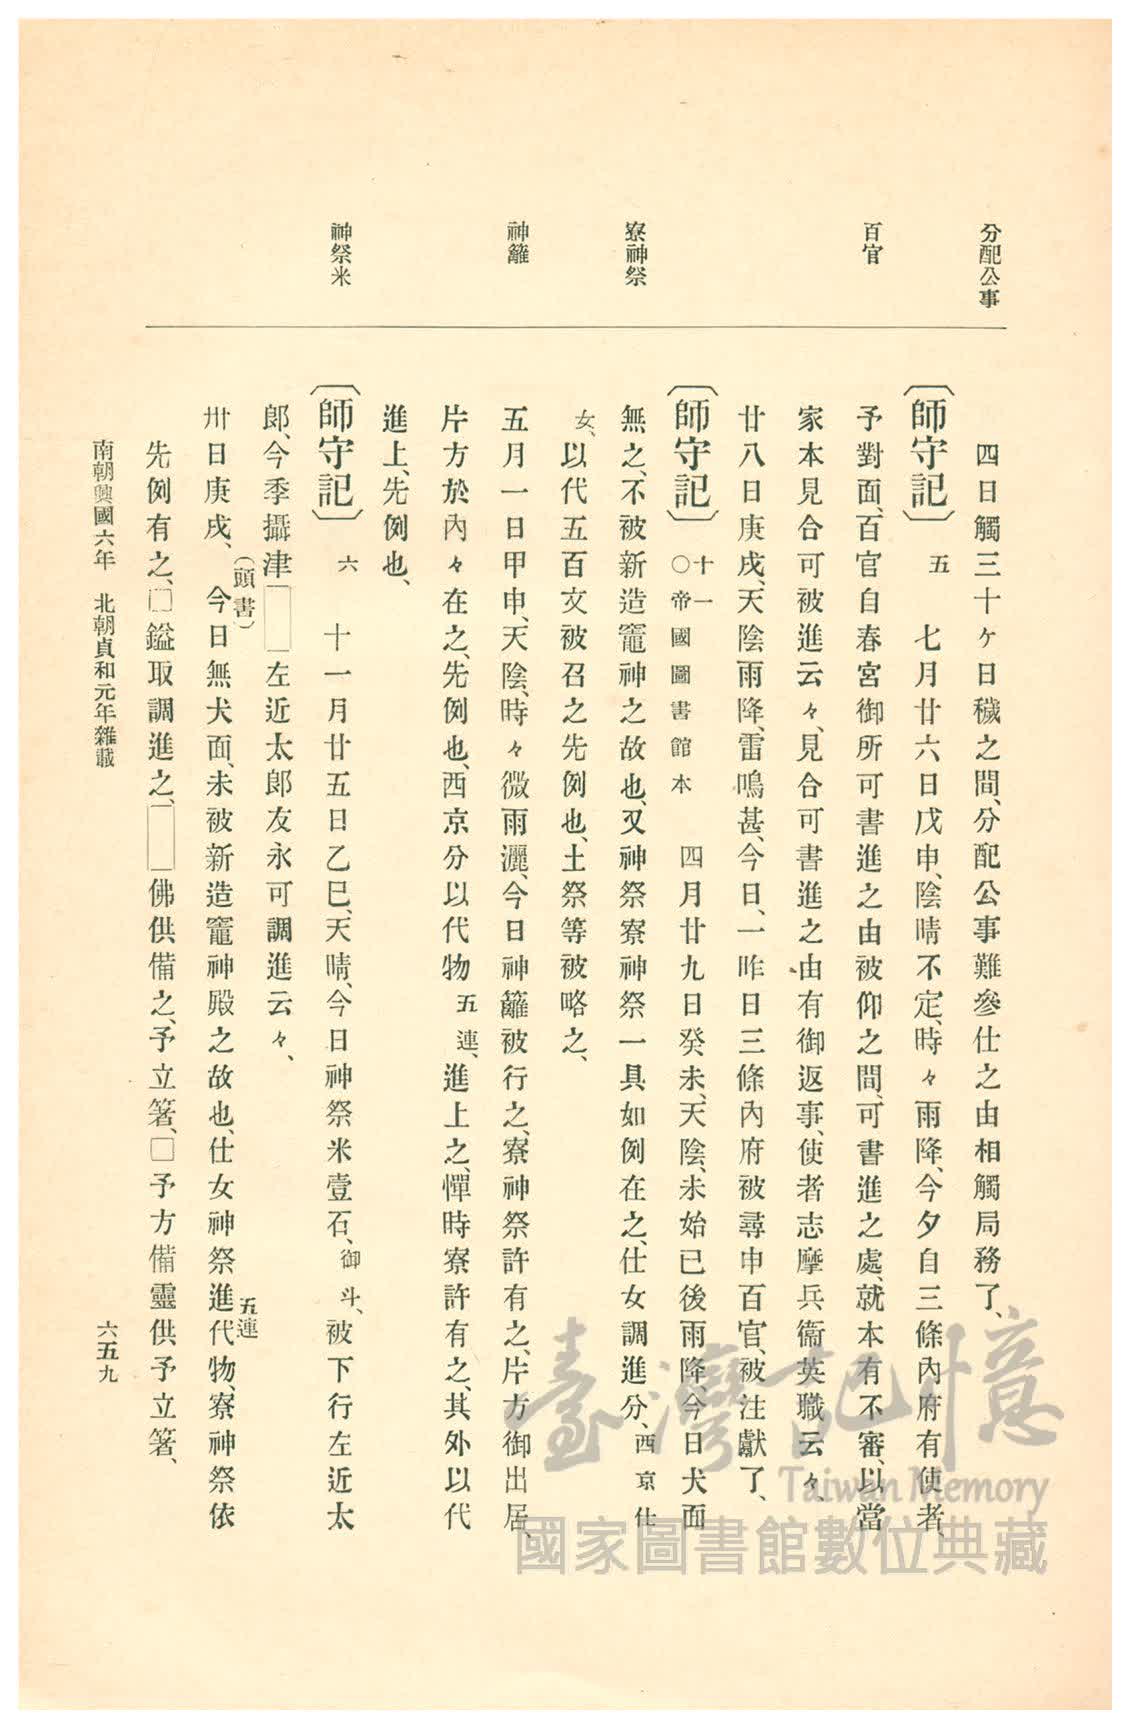 分配公事
百官
寮神祭
神籬
神祭米
四日觸三十ヶ日穢之間、分配公事難參仕之由相觸局務了、
〔師守記〕五 七月廿六日戊申、陰晴不定、時々雨降、今夕自三條內府有使者、
予對面、百官自春宮御所可書進之由被仰之間、可書進之處、就本有不審、以當
家本見合可被進云々、見合可書進之由有御返事、使者志摩兵衞英職云々、
廿八日庚戌、天陰雨降、雷鳴甚、今日、一昨日三條內府被尋申百官、被注獻了、
〔師守記〕十一 ○帝國圖書館本 四月廿九日癸未、天陰、未始已後雨降、今日犬面
無之、不被新造竈神之故也、又神祭寮神祭一具如例在之、仕女調進分、西京仕
女、以代五百文被召之先例也、土祭等被略之、
五月一日甲申、天陰、時々微雨灑、今日神籬被行之、寮神祭許有之、片方御出居、
片方於內々在之、先例也、西京分以代物五連、進上之、憚時寮許有之、其外以代
進上、先例也、
〔師守記〕六 十一月廿五日乙巳、天晴、今日神祭米壹石、御斗、被下行左近太
郎、今季攝津□左近太郎友永可調進云々、
卅日庚戌、(頭書)今日無犬面、未被新造竈神殿之故也、仕女神祭進代物、五連寮神祭依
先例有之、□鎰取調進之、□佛供備之、予立箸、□予方備靈供予立箸、
南朝興國六年 北朝貞和元年雜載
六五九
臺灣記憶
Taiwan Memory
國家圖書館數位典藏